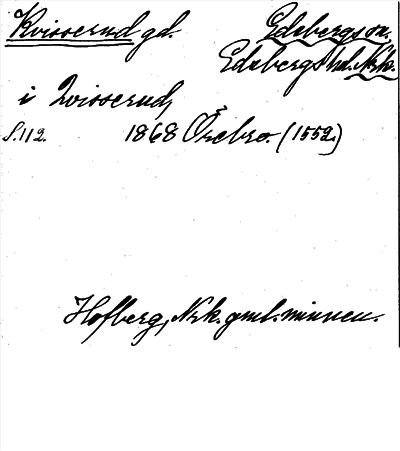 Kvisserud gd. Edsbergs sn.
Edsbergs hd. Nrk.
i Qvisserud,
S. 112. 1868 Örebro. (1552.)
Hofberg, Nrk. gml. minnen.